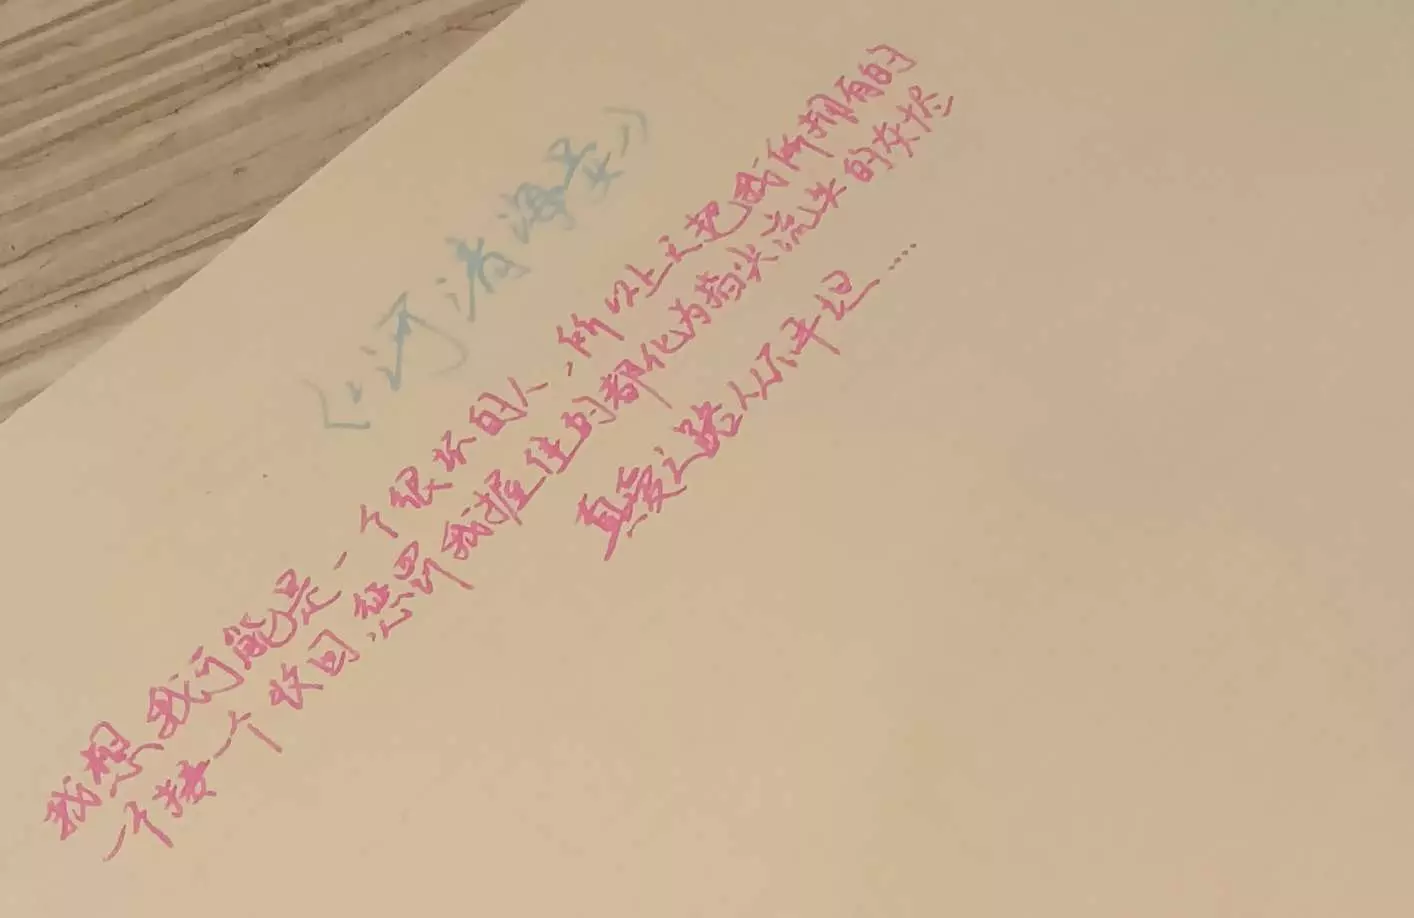 《河清海晏》
我想,我可能是一个很坏的人,所以上天把我所拥有的
一个接一个收回,惩罚我握住的都化为指尖流失的灰烬
真爱之路从不平坦……